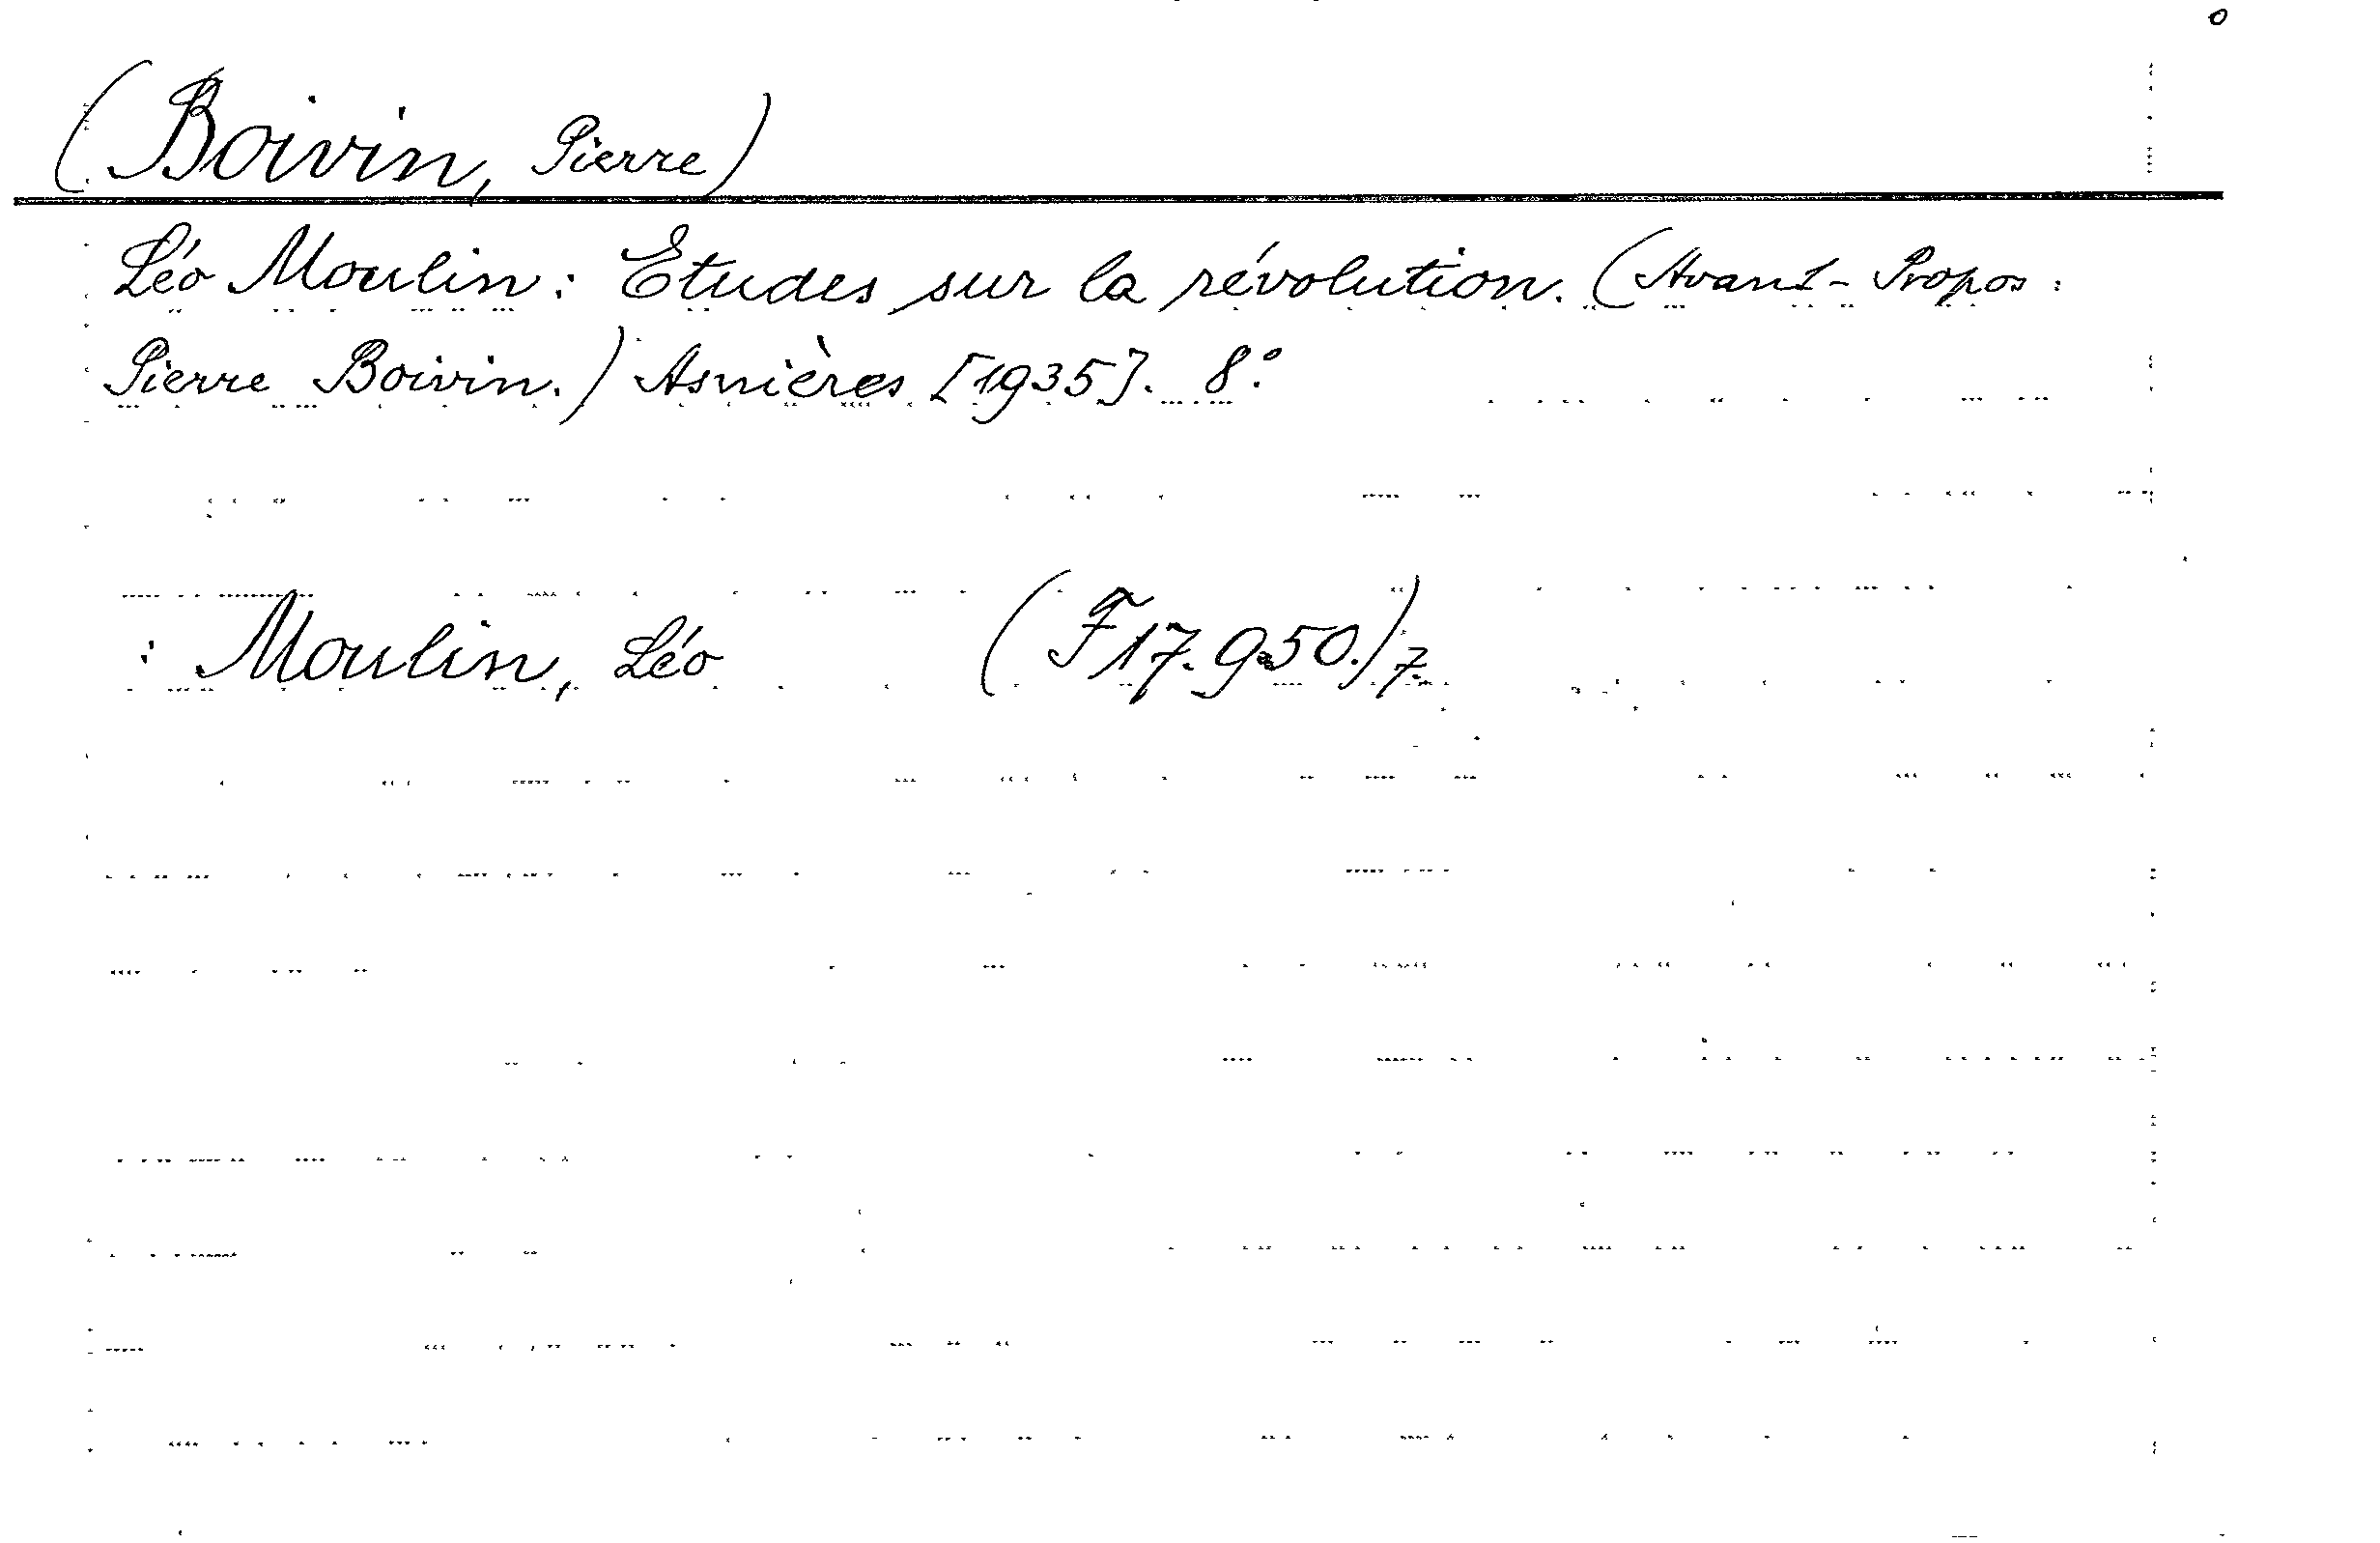 (Boivin, Pierre)
Léo Moulin: Etudes sur la révolution. (Avant-Propos:
Pierre Boivin.) Asnières [1935]. 8°.
: Moulin, Léo (F 17.950.) 7.